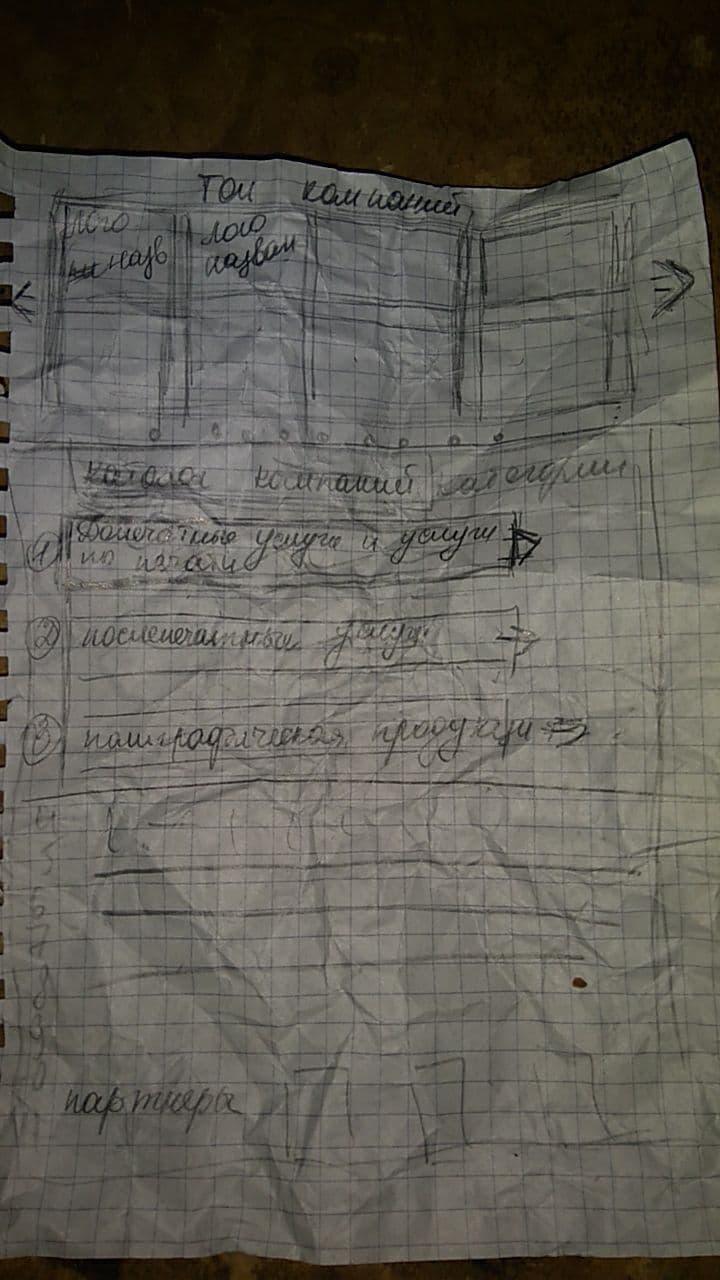 Топ компаний
лого лого
назв назван
каталог компаний категории
1 Допечатные услуги и услуги
по печати
2 послепечатные услуги
3 полиграфическая продукция
4
5
6
7
8
9
10
11
партнеры